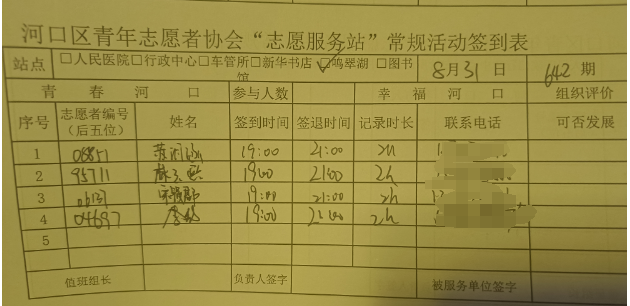 河口区青年志愿者协会“志愿服务站”常规活动签到表
站点 □人民医院□行政中心□车管所□新华书店□鸣翠湖□图书馆 8月31日 642期
青春河口 参与人数 幸福河口 组织评价
序号 志愿者编号（后五位） 姓名 签到时间 签退时间 记录时长 联系电话 可否发展
1 08851 19:00 21:00 2h
2 95711 19:00 21:00 2h
3 19:00 21:00 2h
4 04697 19:00 21:00 2h
5
值班组长 负责人签字 被服务单位签字